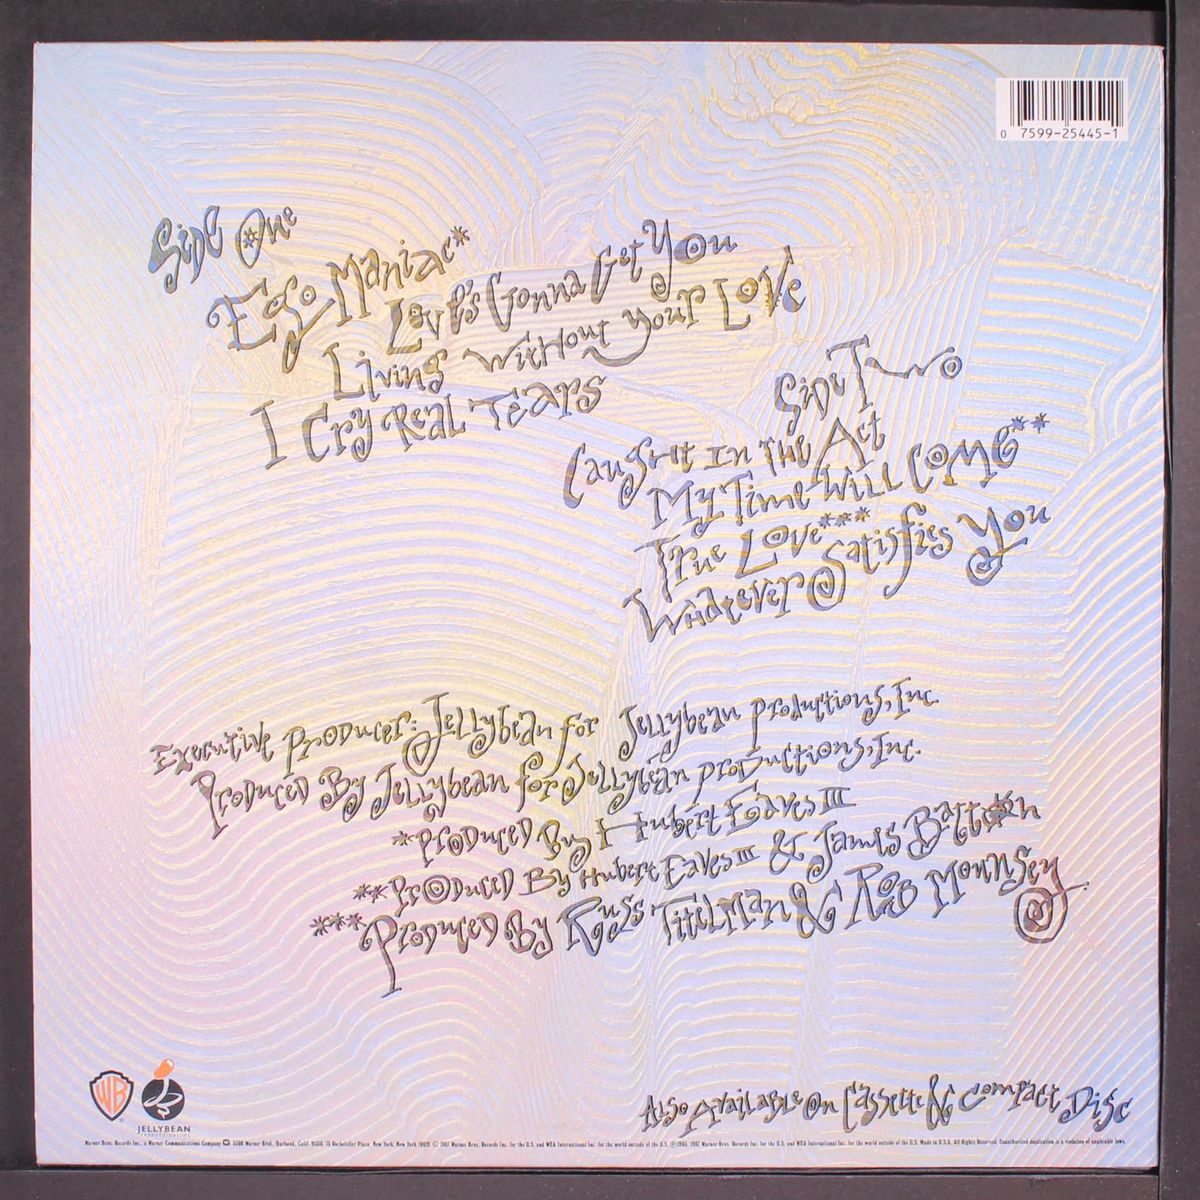 0 7599-25445-1
Side One
Ego Maniac*
Love's Gonna Get You
Living Without Your Love
I Cry Real Tears
Side Two
Caught In The Act
My Time Will Come**
True Love***
Whatever Satisfies You
Executive Producer: Jellybean for Jellybean Productions, Inc.
Produced By Jellybean for Jellybean Productions, Inc.
*Produced By Hubert Eaves III
**Produced By Hubert Eaves III & James Batton
***Produced By Russ Titelman & Rob Mounsey
Also Available On Cassette & Compact Disc
WB
JELLYBEAN
PRODUCTIONS
Warner Bros. Records Inc., a Warner Communications Company 3300 Warner Blvd., Burbank, Calif. 91510. 75 Rockefeller Plaza, New York, New York 10019 © 1987 Warner Bros. Records Inc. for the U.S. and WEA International Inc. for the world outside of the U.S. ℗ 1985, 1987 Warner Bros. Records Inc. for the U.S. and WEA International Inc. for the world outside of the U.S. Made in U.S.A. All Rights Reserved. Unauthorized duplication is a violation of applicable laws.